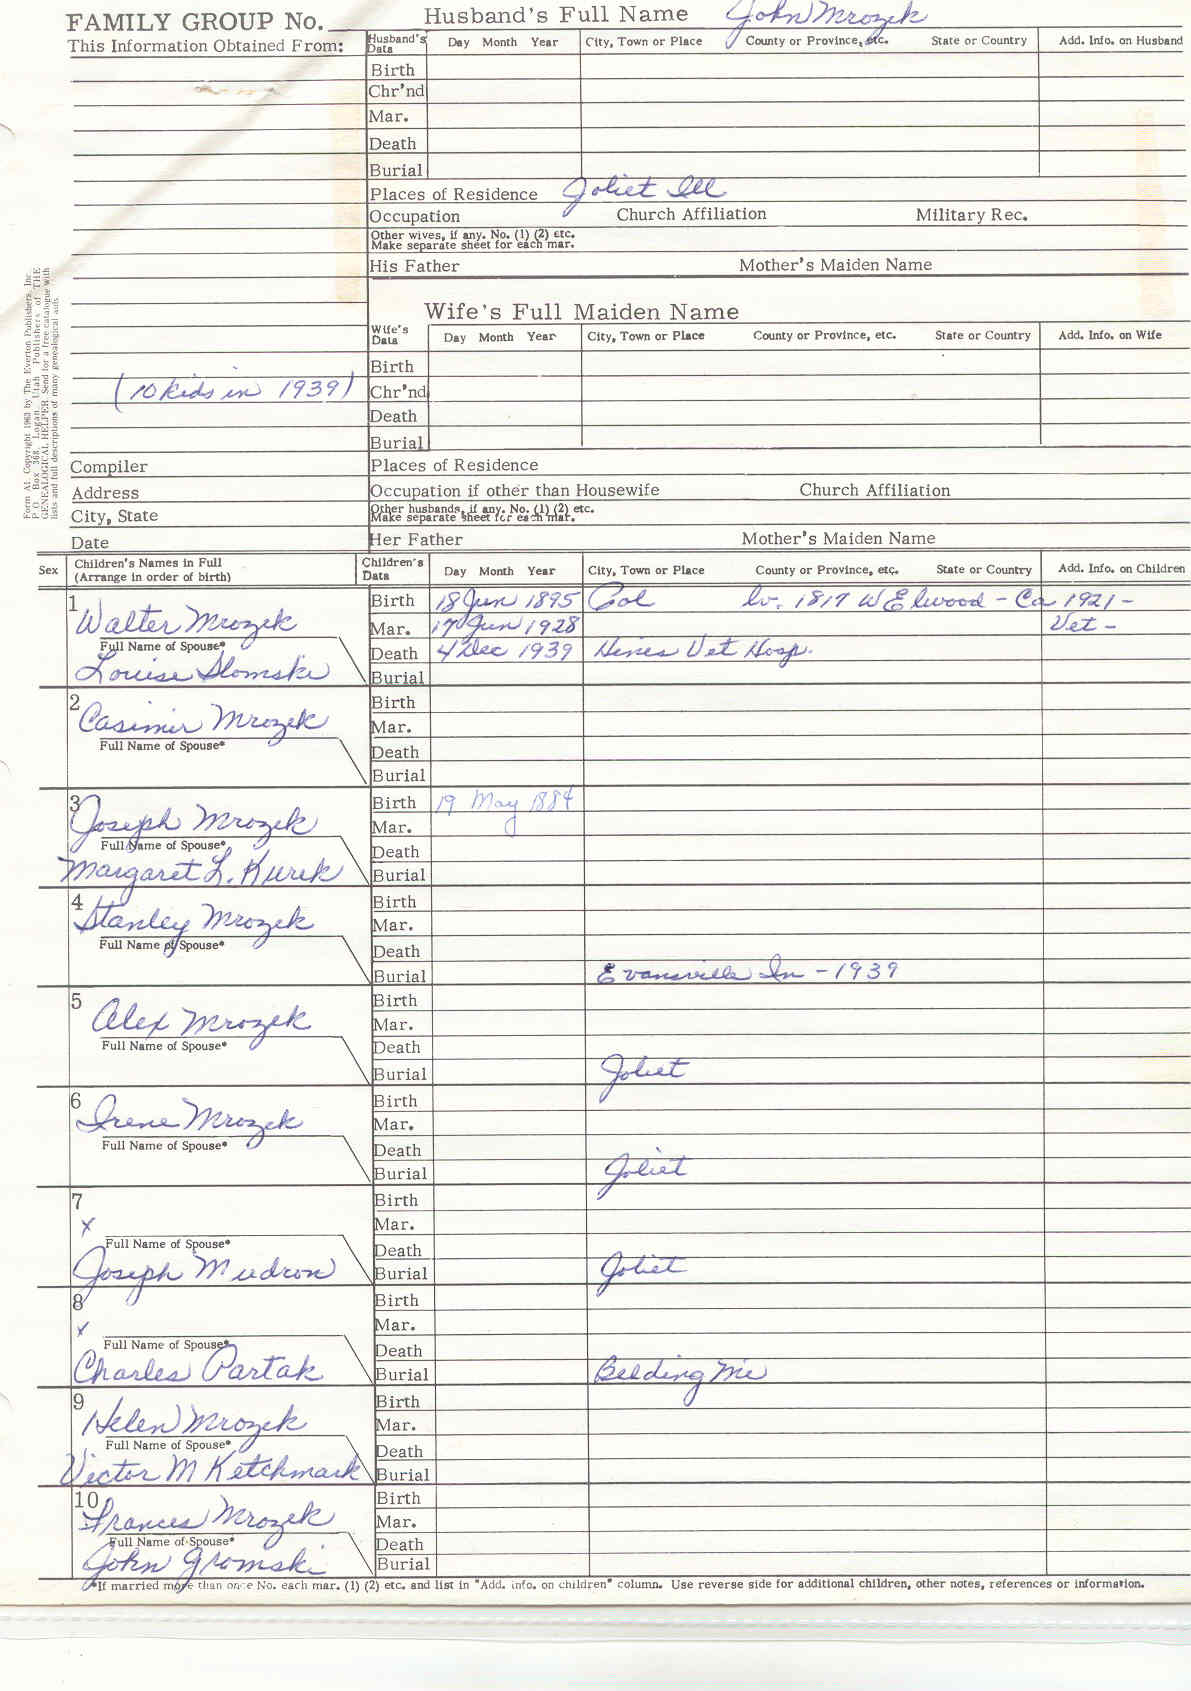 FAMILY GROUP No.
Husband's Full Name John Mrozek
This Information Obtained From:
Husband's Data Day Month Year City, Town or Place County or Province, etc. State or Country Add. Info. on Husband
Birth
Chr'nd
Mar.
Death
Burial
Places of Residence Joliet Ill
Occupation Church Affiliation Military Rec.
Other wives, if any. No. (1) (2) etc.
Make separate sheet for each mar.
His Father Mother's Maiden Name
Form A1. Copyright 1963 by The Everton Publishers, Inc.
P. O. Box 368, Logan, Utah Publishers of THE
GENEALOGICAL HELPER. Send for a free catalogue with
lists and full descriptions of many genealogical aids.
Wife's Full Maiden Name
Wife's Data Day Month Year City, Town or Place County or Province, etc. State or Country Add. Info. on Wife
Birth
(10 kids in 1939) Chr'nd
Death
Burial
Compiler Places of Residence
Address Occupation if other than Housewife Church Affiliation
City, State Other husbands, if any. No. (1) (2) etc.
Make separate sheet for each mar.
Date Her Father Mother's Maiden Name
Sex Children's Names in Full
(Arrange in order of birth) Children's Data Day Month Year City, Town or Place County or Province, etc. State or Country Add. Info. on Children
1 Birth 18 Jun 1895 Col lv. 1817 W Elwood - Ca 1921 -
Walter Mrozek Mar. 17 Jun 1928 Vet -
Full Name of Spouse* Death 4 Dec 1939 Hines Vet Hosp.
Louise Slomski Burial
2 Birth
Casimir Mrozek Mar.
Full Name of Spouse* Death
Burial
3 Birth 19 May 1884
Joseph Mrozek Mar.
Full Name of Spouse* Death
Margaret L. Kurek Burial
4 Birth
Stanley Mrozek Mar.
Full Name of Spouse* Death
Burial Evansville In - 1939
5 Birth
Alex Mrozek Mar.
Full Name of Spouse* Death
Burial Joliet
6 Birth
Irene Mrozek Mar.
Full Name of Spouse* Death
Burial Joliet
7 Birth
x Mar.
Full Name of Spouse* Death
Joseph Mudron Burial Joliet
8 Birth
x Mar.
Full Name of Spouse* Death
Charles Partak Burial Belding Mi
9 Birth
Helen Mrozek Mar.
Full Name of Spouse* Death
Victor M Ketchmark Burial
10 Birth
Frances Mrozek Mar.
Full Name of Spouse* Death
John Gromski Burial
*If married more than once No. each mar. (1) (2) etc. and list in "Add. info. on children" column. Use reverse side for additional children, other notes, references or information.